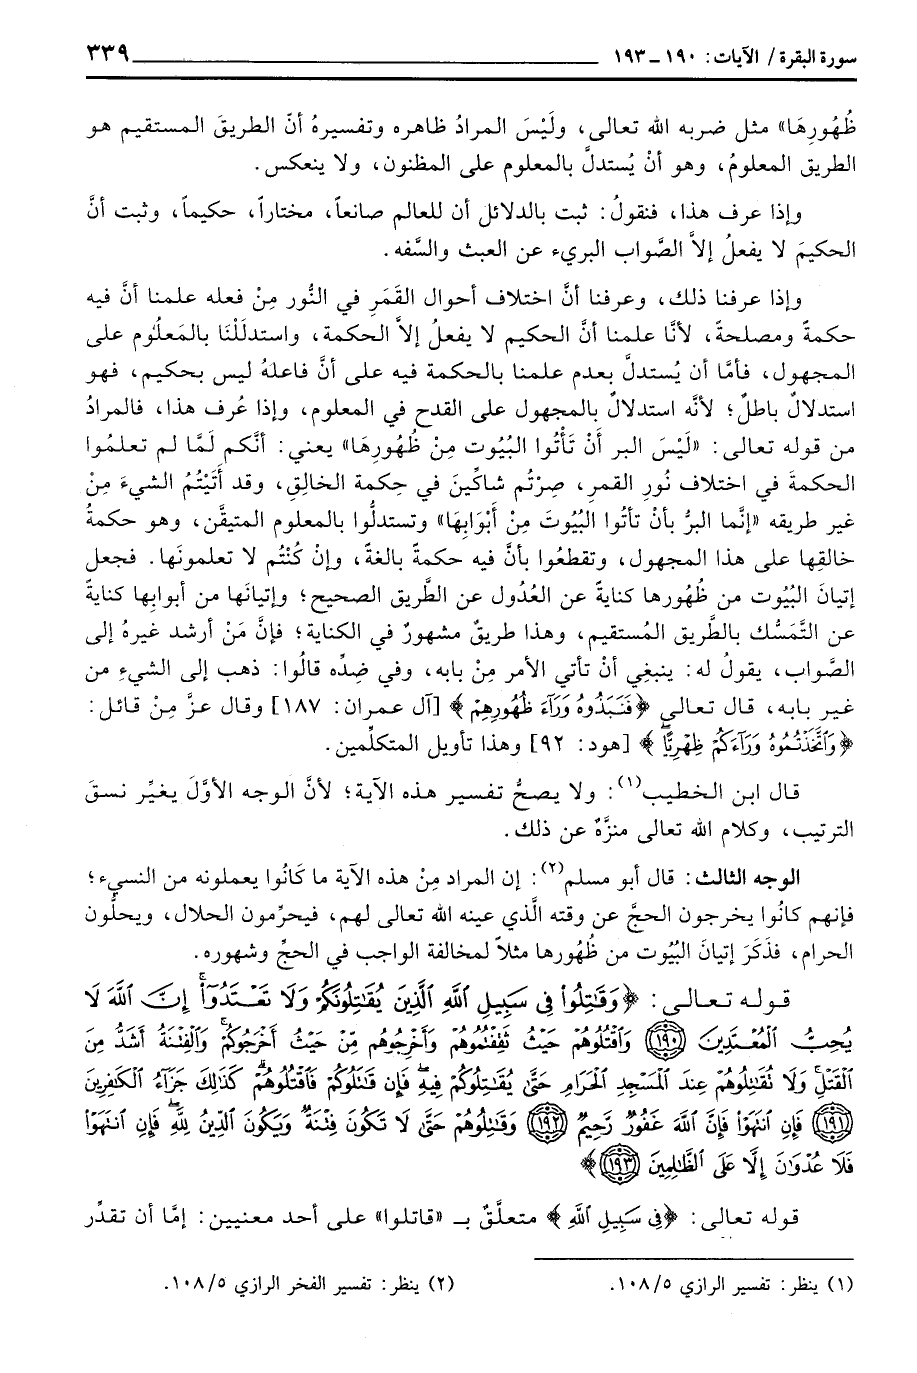 سورة البقرة / الآيات : ١٩٠ ـ ١٩٣ ٣٣٩
ظُهُورِهَا» مثل ضربه الله تعالى، ولَيْسَ المرادُ ظاهره وتفسيرهُ أنَّ الطريقَ المستقيم هو
الطريق المعلومُ، وهو أنْ يُستدلَّ بالمعلوم على المظنون، ولا ينعكس.
وإذا عرف هذا، فنقولُ: ثبت بالدلائل أن للعالم صانعاً، مختاراً، حكيماً، وثبت أنَّ
الحكيمَ لا يفعلُ إلاَّ الصَّواب البريء عن العبث والسَّفه.
وإذا عرفنا ذلك، وعرفنا أنَّ اختلاف أحوال القَمَرِ في النُّور مِنْ فعله علمنا أنَّ فيه
حكمةً ومصلحةً، لأنَّا علمنا أنَّ الحكيم لا يفعلُ إلاَّ الحكمة، واستدلَلْنَا بالمَعلُوم على
المجهول، فأمَّا أن يُستدلَّ بعدم علمنا بالحكمة فيه على أنَّ فاعلهُ ليس بحكيم، فهو
استدلالٌ باطلٌ؛ لأنَّه استدلالٌ بالمجهول على القدح في المعلوم، وإذا عُرف هذا، فالمرادُ
من قوله تعالى: «لَيْسَ البر أَنْ تَأْتُوا البُيُوت مِنْ ظُهُورِهَا» يعني: أنَّكم لَمَّا لم تعلمُوا
الحكمةَ في اختلاف نُورِ القمرِ، صِرْتُم شاكِّينَ في حِكمة الخالِقِ، وقد أَتَيْتُمُ الشيءَ مِنْ
غير طريقه «إنَّما البرُّ بأن تأتُوا البُيُوتَ مِنْ أَبْوَابِهَا» وتستدلُّوا بالمعلوم المتيقَّن، وهو حكمةُ
خالقِها على هذا المجهول، وتقطعُوا بأنَّ فيه حكمةً بالغةً، وإنْ كُنْتُم لا تعلمونَها. فجعل
إتيانَ البُيُوت من ظُهُورها كنايةً عن العُدُول عن الطَّريق الصحيح؛ وإتيانَها من أبوابِها كنايةً
عن التَّمَسُّك بالطَّريق المُستقيم، وهذا طريقٌ مشهورٌ في الكناية؛ فإنَّ مَنْ أرشد غيرهُ إلى
الصَّواب، يقولُ له: ينبغِي أنْ تأتي الأمر مِنْ بابه، وفي ضِدِّه قالُوا: ذهب إلى الشيءِ من
غير بابه، قال تعالى ﴿فَنَبَذُوهُ وَرَآءَ ظُهُورِهِمْ﴾ [آل عمران: ١٨٧] وقال عزَّ مِنْ قائل:
﴿وَٱتَّخَذْتُمُوهُ وَرَآءَكُمْ ظِهْرِيًّا﴾ [هود: ٩٢] وهذا تأويل المتكلِّمين.
قال ابن الخطيب(١): ولا يصحُّ تفسير هذه الآية؛ لأنَّ الوجه الأوَّلَ يغيِّر نسقَ
الترتيب، وكلام الله تعالى منزَّهٌ عن ذلك.
الوجه الثالث: قال أبو مسلم(٢): إن المراد مِنْ هذه الآية ما كَانُوا يعملونه من النسيء؛
فإنهم كانُوا يخرجون الحجَّ عن وقته الَّذي عينه الله تعالى لهم، فيحرِّمون الحلال، ويحلُّون
الحرام، فذَكَرَ إتيانَ البُيُوت من ظُهُورها مثلاً لمخالفة الواجب في الحجِّ وشهوره.
قوله تعالى: ﴿وَقَٰتِلُوا۟ فِى سَبِيلِ ٱللَّهِ ٱلَّذِينَ يُقَٰتِلُونَكُمْ وَلَا تَعْتَدُوٓا۟ۚ إِنَّ ٱللَّهَ لَا
يُحِبُّ ٱلْمُعْتَدِينَ ١٩٠ وَٱقْتُلُوهُمْ حَيْثُ ثَقِفْتُمُوهُمْ وَأَخْرِجُوهُم مِّنْ حَيْثُ أَخْرَجُوكُمْۚ وَٱلْفِتْنَةُ أَشَدُّ مِنَ
ٱلْقَتْلِۚ وَلَا تُقَٰتِلُوهُمْ عِندَ ٱلْمَسْجِدِ ٱلْحَرَامِ حَتَّىٰ يُقَٰتِلُوكُمْ فِيهِۖ فَإِن قَٰتَلُوكُمْ فَٱقْتُلُوهُمْۗ كَذَٰلِكَ جَزَآءُ ٱلْكَٰفِرِينَ
١٩١ فَإِنِ ٱنتَهَوْا۟ فَإِنَّ ٱللَّهَ غَفُورٌ رَّحِيمٌ ١٩٢ وَقَٰتِلُوهُمْ حَتَّىٰ لَا تَكُونَ فِتْنَةٌ وَيَكُونَ ٱلدِّينُ لِلَّهِۖ فَإِنِ ٱنتَهَوْا۟
فَلَا عُدْوَٰنَ إِلَّا عَلَى ٱلظَّٰلِمِينَ ١٩٣﴾
قوله تعالى: ﴿فِى سَبِيلِ ٱللَّهِ﴾ متعلَّقٌ بـ «قاتلوا» على أحد معنيين: إمَّا أن تقدِّر
(١) ينظر: تفسير الرازي ١٠٨/٥. (٢) ينظر: تفسير الفخر الرازي ١٠٨/٥.